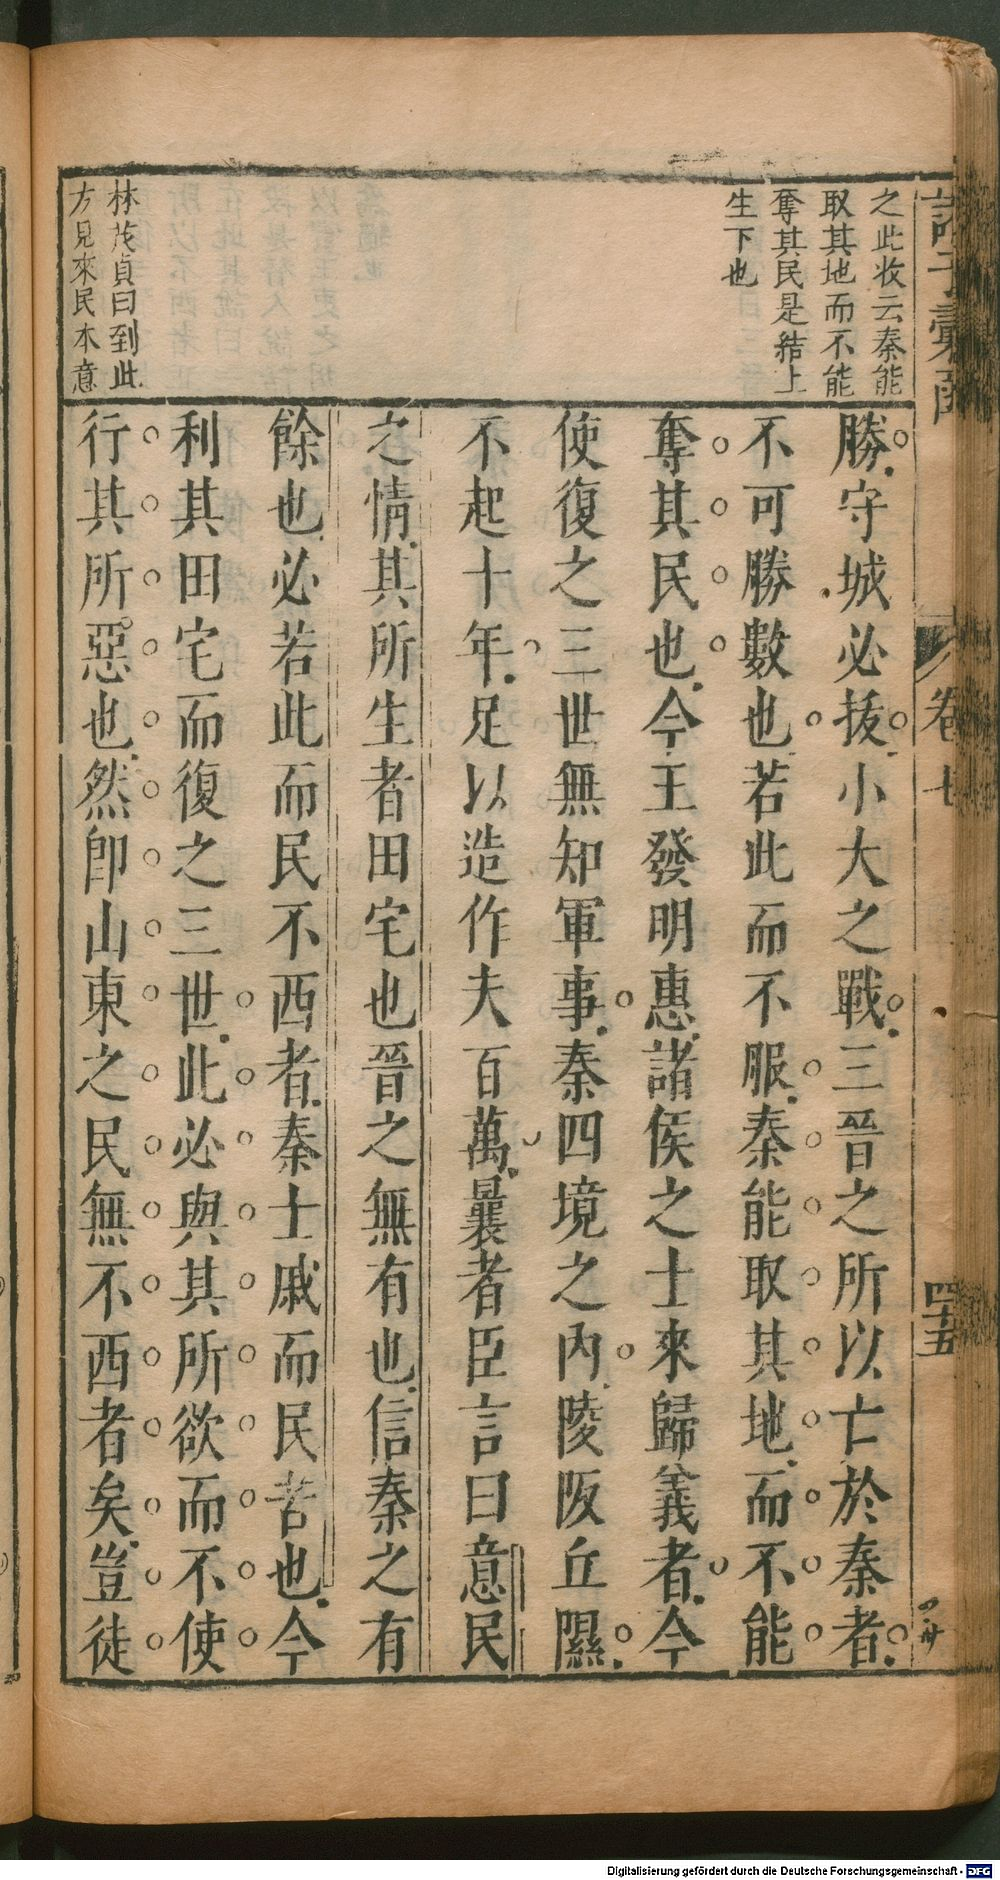 之此收云秦能
取其地而不能
奪其民是結上
生下也
林茂貞曰到此
方見來民本意
勝守城必拔小大之戰三晉之所以亡於秦者
不可勝數也若此而不服秦能取其地而不能
奪其民也今王發明惠諸侯之士來歸義者今
使復之三世無知軍事秦四境之內陵阪丘隰
不起十年足以造作夫百萬曩者臣言曰意民
之情其所生者田宅也晉之無有也信秦之有
餘也必若此而民不西者秦士戚而民苦也今
利其田宅而復之三世此必與其所欲而不使
行其所惡也然卽山東之民無不西者矣豈徒
卷七
四十五
Digitalisierung gefördert durch die Deutsche Forschungsgemeinschaft - DFG